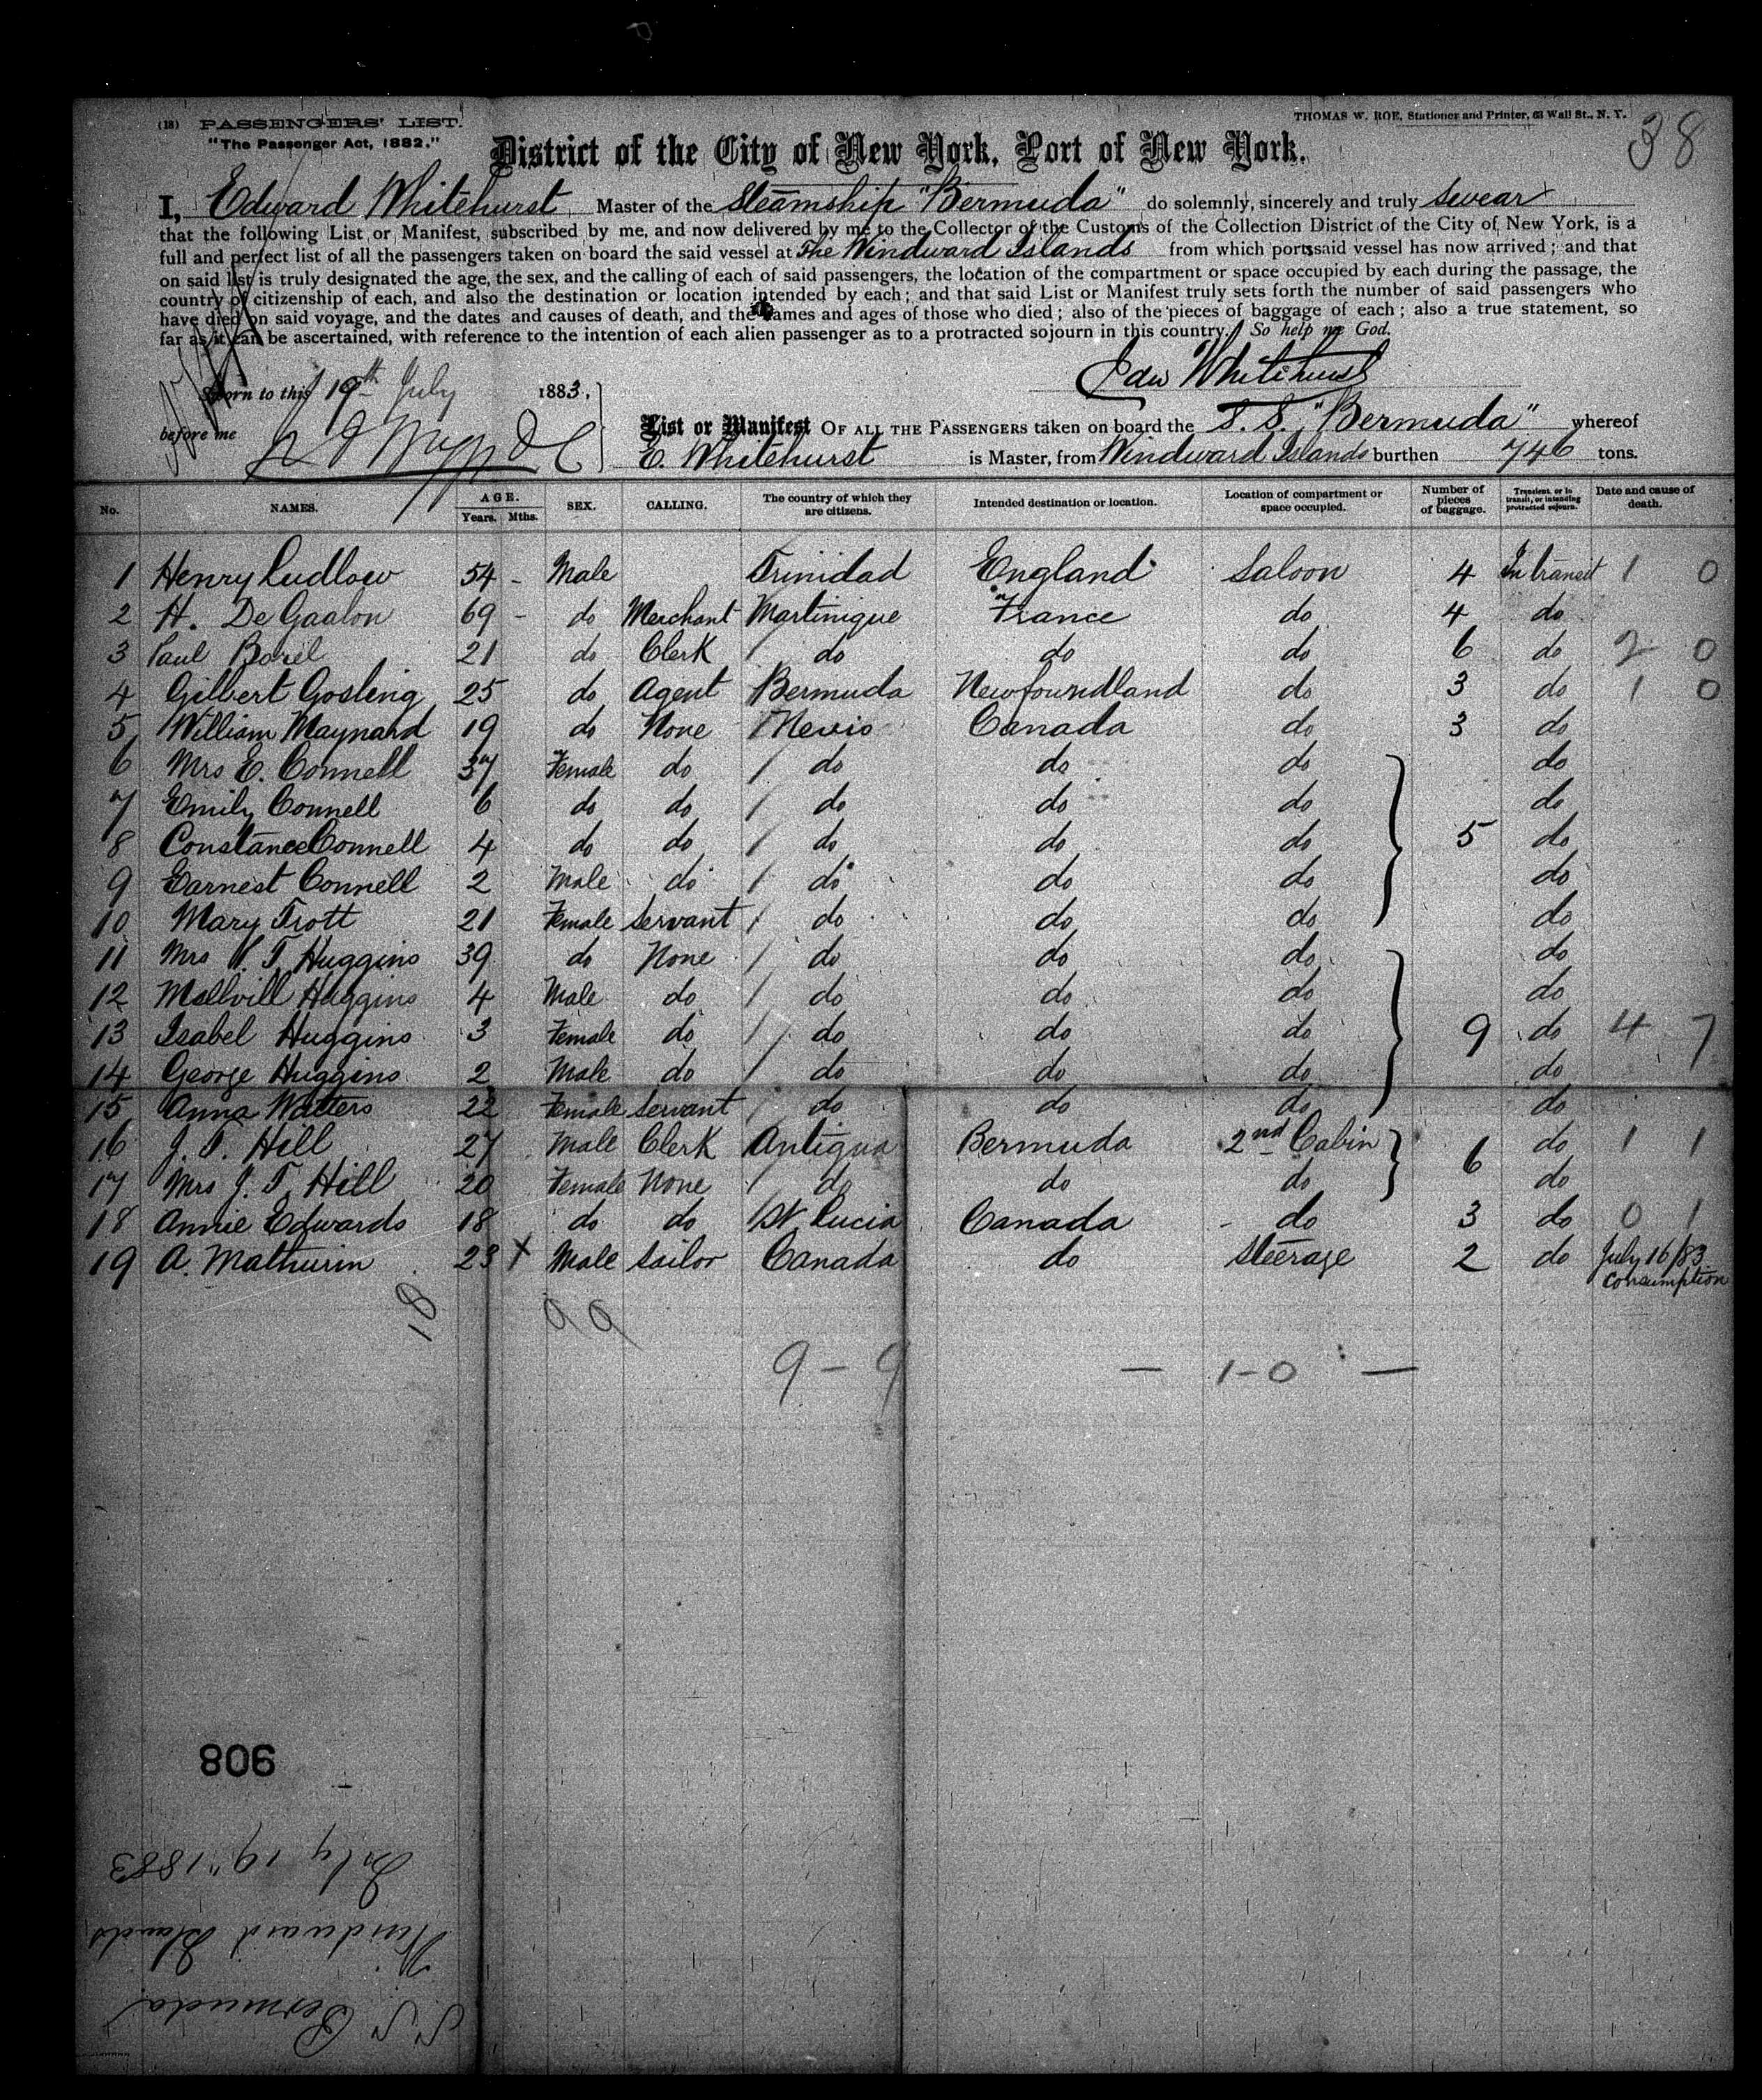 (18) PASSENGERS' LIST.
THOMAS W. ROE, Stationer and Printer, 63 Wall St., N. Y.
38
"The Passenger Act, 1882."
District of the City of New York, Port of New York.
I, Edward Whitehurst Master of the Steamship "Bermuda" do solemnly, sincerely and truly swear
that the following List or Manifest, subscribed by me, and now delivered by me to the Collector of the Customs of the Collection District of the City of New York, is a
full and perfect list of all the passengers taken on board the said vessel at The Windward Islands from which ports said vessel has now arrived; and that
on said list is truly designated the age, the sex, and the calling of each of said passengers, the location of the compartment or space occupied by each during the passage, the
country of citizenship of each, and also the destination or location intended by each; and that said List or Manifest truly sets forth the number of said passengers who
have died on said voyage, and the dates and causes of death, and the names and ages of those who died; also of the pieces of baggage of each; also a true statement, so
far as it can be ascertained, with reference to the intention of each alien passenger as to a protracted sojourn in this country. So help me God.
Edw Whitehurst
Sworn to this 19th July 1883,
before me
List or Manifest OF ALL THE PASSENGERS taken on board the S. S. "Bermuda" whereof
E. Whitehurst is Master, from Windward Islands burthen 746 tons.
No. NAMES. AGE. Years. Mths. SEX. CALLING. The country of which they are citizens. Intended destination or location. Location of compartment or space occupied. Number of pieces of baggage. Transient, or in transit, or intending protracted sojourn. Date and cause of death.
1 Henry Ludlow 54 - Male Trinidad England Saloon 4 In transit 1 0
2 H. De Gaalon 69 - do Merchant Martinique France do 4 do
3 Paul Borel 21 do Clerk do do do 6 do 2 0
4 Gilbert Gosling 25 do Agent Bermuda Newfoundland do 3 do 1 0
5 William Maynard 19 do None Nevis Canada do 3 do
6 Mrs E. Connell 37 Female do do do do do
7 Emily Connell 6 do do do do do do
8 Constance Connell 4 do do do do do 5 do
9 Earnest Connell 2 Male do do do do do
10 Mary Trott 21 Female Servant do do do do
11 Mrs T Huggins 39 do None do do do do
12 Mellvill Huggins 4 Male do do do do do
13 Isabel Huggins 3 Female do do do do 9 do 4 7
14 George Huggins 2 Male do do do do do
15 Anna Watters 22 Female Servant do do do do
16 J. T. Hill 27 Male Clerk Antigua Bermuda 2nd Cabin 6 do 1 1
17 Mrs J. T. Hill 20 Female None do do do do
18 Annie Edwards 18 do do St Lucia Canada - do 3 do 0 1
19 A. Mathurin 23 X Male Sailor Canada do Steerage 2 do July 16/83
Consumption
18
9 9
9 - 9 — 1-0 —
806
July 19" 1883
Windward Islands
S. S. Bermuda